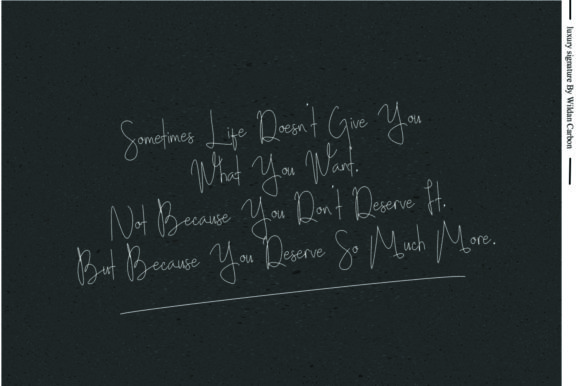 Sometimes Life Doesn't Give You
What You Want.
Not Because You Don't Deserve It.
But Because You Deserve So Much More.
luxury signature By Wildan Carbon